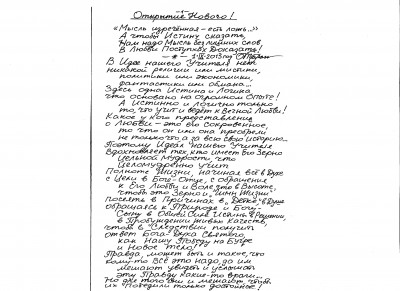 Открытие Нового!
"Мысль изречённая - есть ложь..."
А чтобы Истину сказать,
Нам надо Мысль без лишних слов,
В Любви Поступках Доказать!
В Идее нашего Учителя нет
никакой религии или мистики,
политики или экономики,
фантастики или обмана...
Здесь одна Истина и Логика,
что основано на огромном Опыте!
А Истинно и логично только
то, что учит и ведёт к Вечной Любви!
Какое у кого представление
о Любви - это его сокровенное,
то что он или она преобрели,
не только что а за всю свою историю...
Поэтому Идеал нашего Учителя
Вдохновляет тех кто имеет его Зерно
Цельной Мудрости, что
Целомудренно учит
Полноте Жизни, начиная всё в Духе
с Цели в Боге-Отце, с обращение
к Его Любви и Волею в Высоте,
чтобы это Зерно и "Инь Жизни"
посеять в Причинах в "Детях" в Духе
обращаясь к Природе и Богу-
Сыну в Общей Силе Ислама и
в Пробуждении живых качеств,
чтобы в Следствии получить
ответ Бога-Духа Святого,
как Нашу Победу на Будде
и Новое Тело!
Правда, может быть и такое, что
кому-то Всё это надо, да им
мешают увидеть и услышать
эту Правду какие-то враги...
Но для того они и мешают, чтобы
их Победили только достойные!